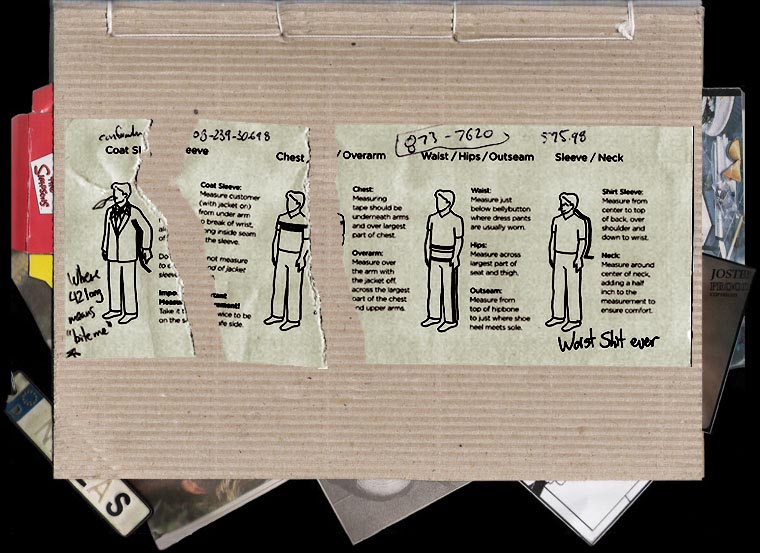 873-7620
575.98
Coat Sl
eeve
Chest
/Overarm
Waist / Hips / Outseam
Sleeve / Neck
Coat Sleeve:
Measure customer
(with jacket on)
from under arm
o break of wrist,
ng inside seam
the sleeve.
not measure
nd of jacket
rtant
ement!
wice to be
afe side.
Do
to
sleev
Impo
Measu
Take it t
on the s
Chest:
Measuring
tape should be
underneath arms
and over largest
part of chest.
Overarm:
Measure over
the arm with
the jacket off
across the largest
part of the chest
and upper arms.
Waist:
Measure just
below bellybutton
where dress pants
are usually worn.
Hips:
Measure across
largest part of
seat and thigh.
Outseam:
Measure from
top of hipbone
to just where shoe
heel meets sole.
Shirt Sleeve:
Measure from
center to top
of back, over
shoulder and
down to wrist.
Neck:
Measure around
center of neck,
adding a half
inch to the
measurement to
ensure comfort.
Where
42 long
means
"bite me"
Worst Shit ever
SIMPSONS
JOSTE
PROO
AS